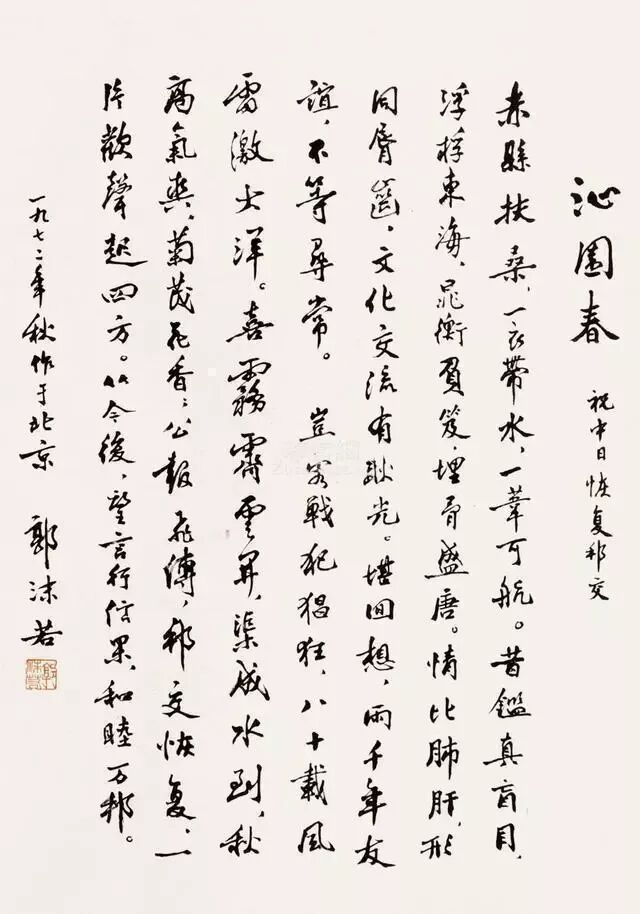 沁園春
祝中日恢复邦交
赤縣扶桑，一衣帶水，一葦可航。昔鑑真盲目，
浮桴東海，晁衡負笈，埋骨盛唐。情比肺肝，形
同唇齒，文化交流有耿光。堪回想，兩千年友
誼，不等尋常。　豈容戰犯猖狂，八十載風
雷激大洋。喜霧霽雲開，渠成水到，秋
高氣爽，菊茂花香；公報飛傳，邦交恢复，一
片歡聲起四方。从今後，望言行信果，和睦万邦。
一九七二年秋作于北京
郭沫若